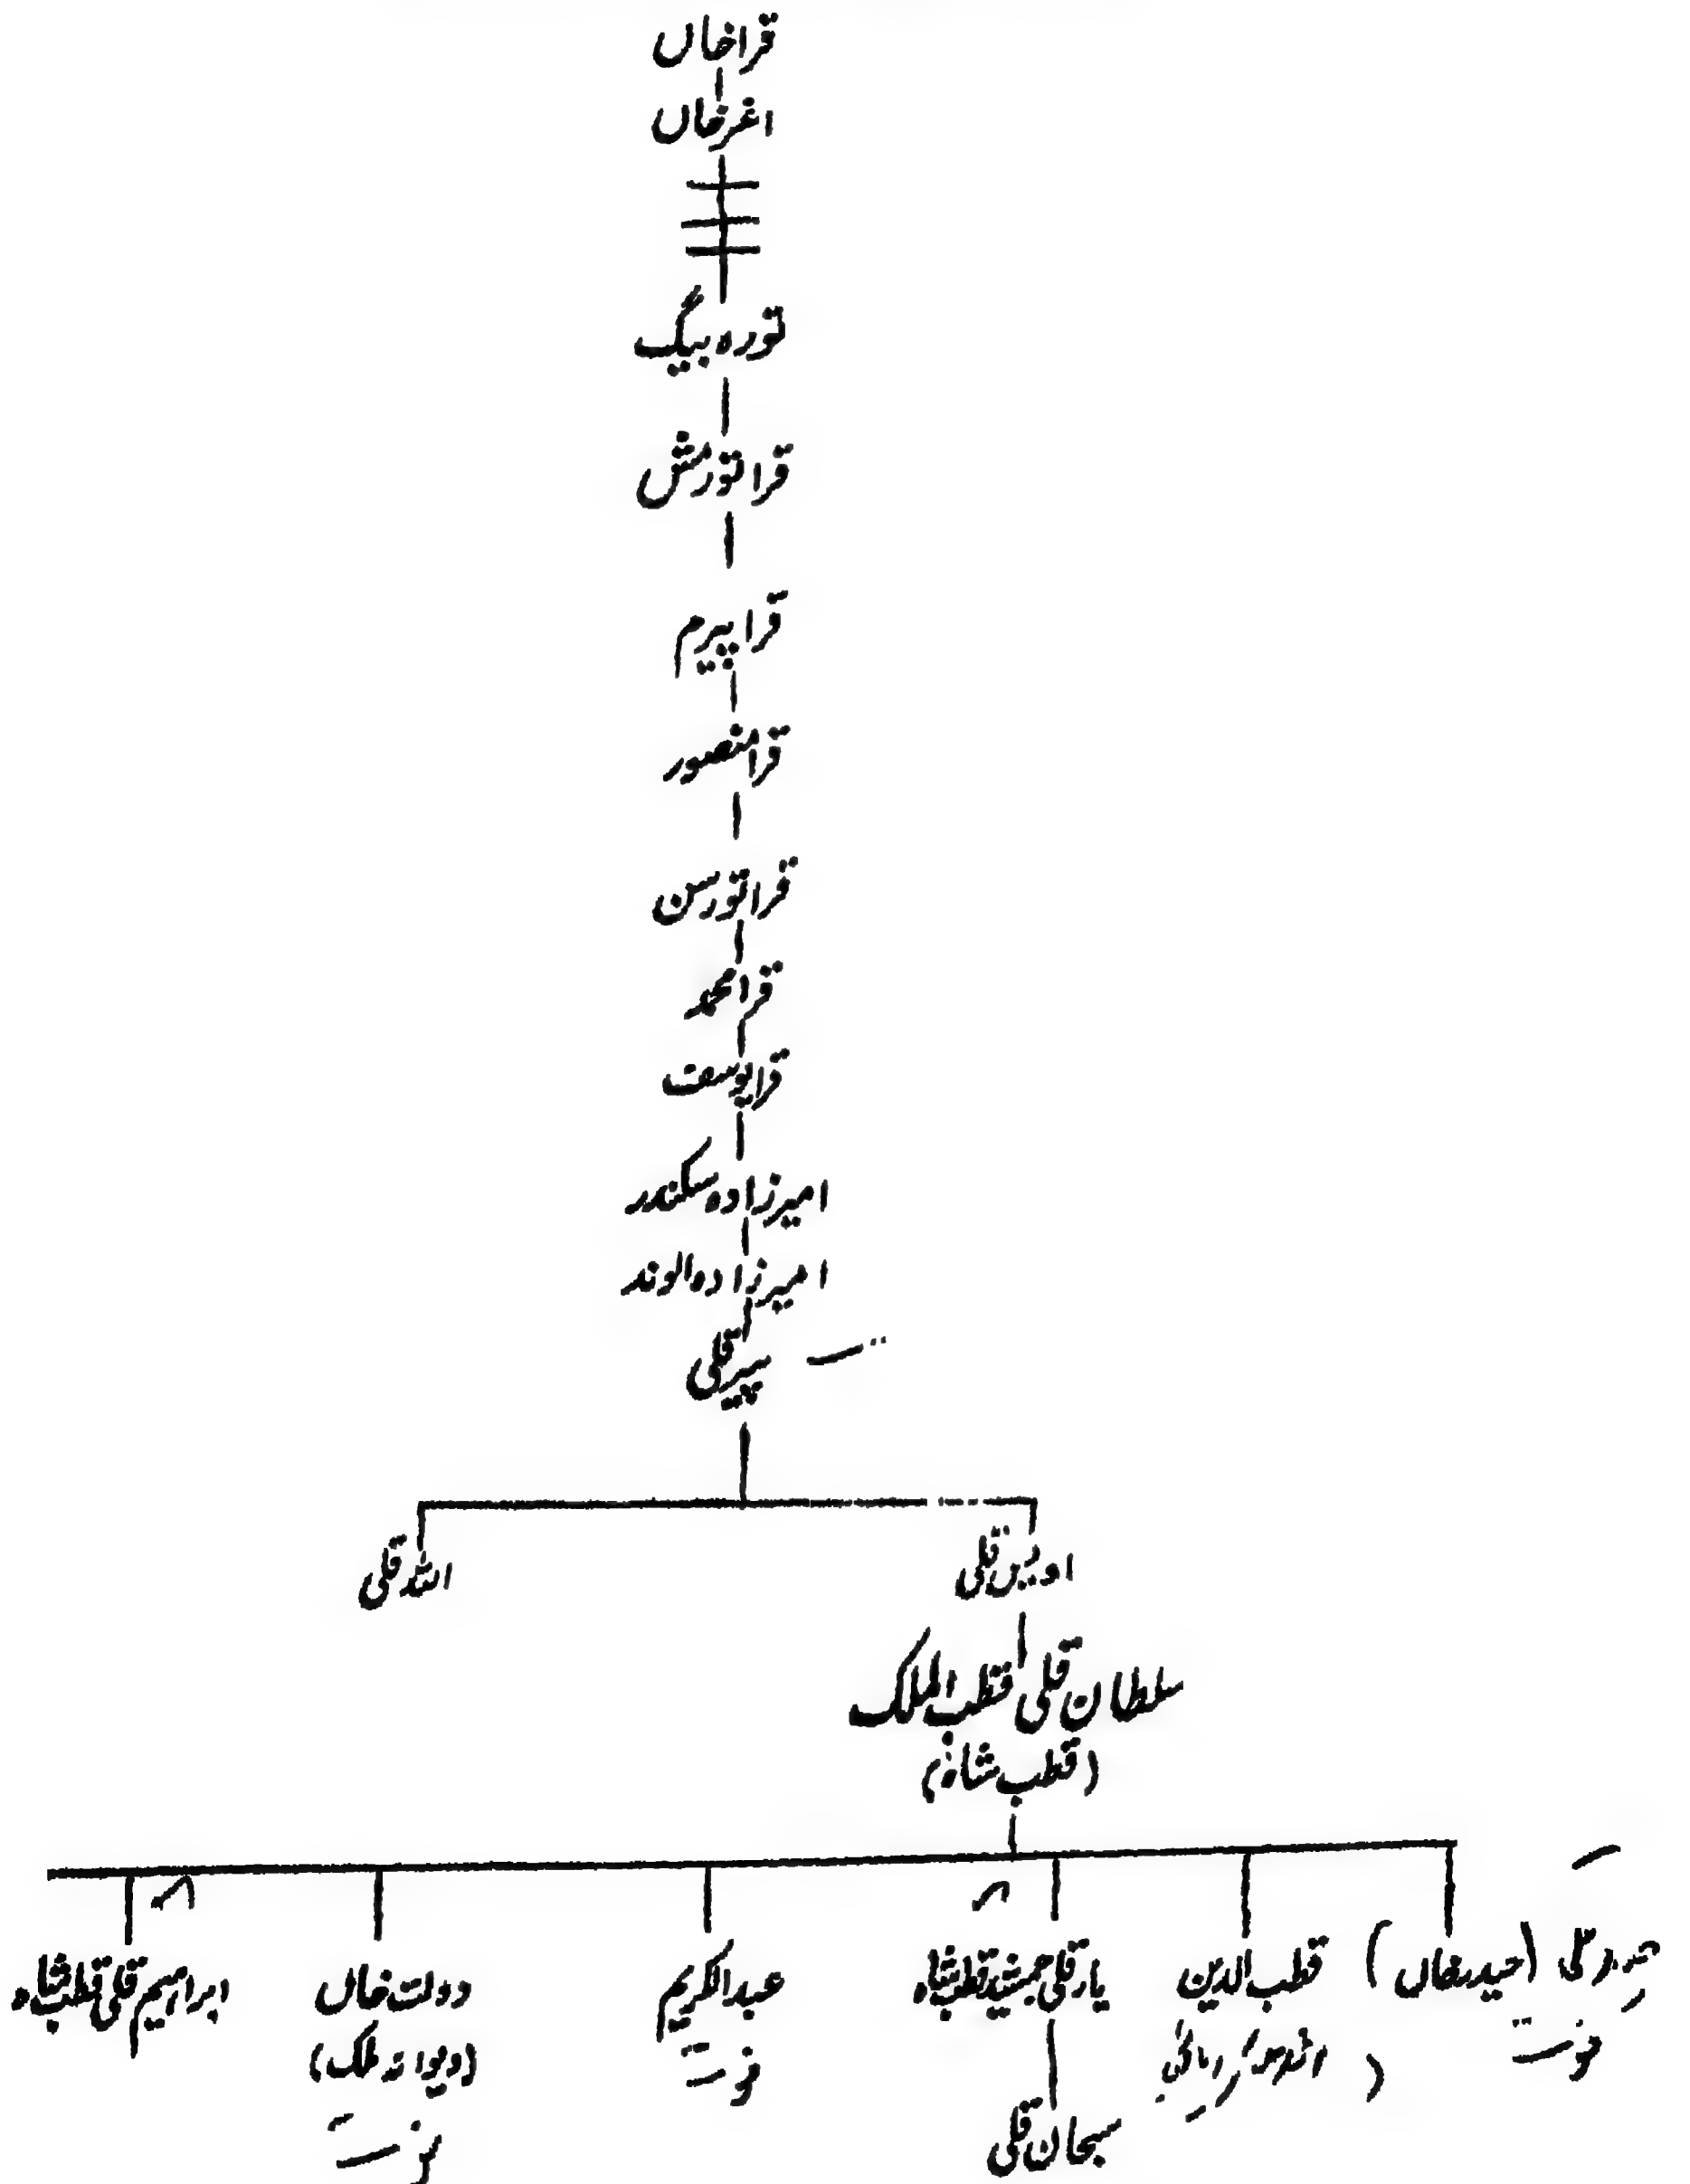 قراخاں
اغرخاں
تورہ بیگ
قرا تورمش
قرا پیرم
قرا منصور
قرا تورسن
قرا محمد
قرا یوسف
امیرزادہ سکندر
امیرزادہ الوند
پیر قلی
اویس قلی
اللہ قلی
سلطان قلی قطب الملک
(قطب شاہ)
حیدر قلی (حیدر خاں)
فوت
قطب الدین
یار قلی جمشید قطب شاہ
سبحان قلی
عبدالکریم
فوت
دولت خاں
(دیوانہ ملک)
فوت
ابراہیم قلی قطب شاہ